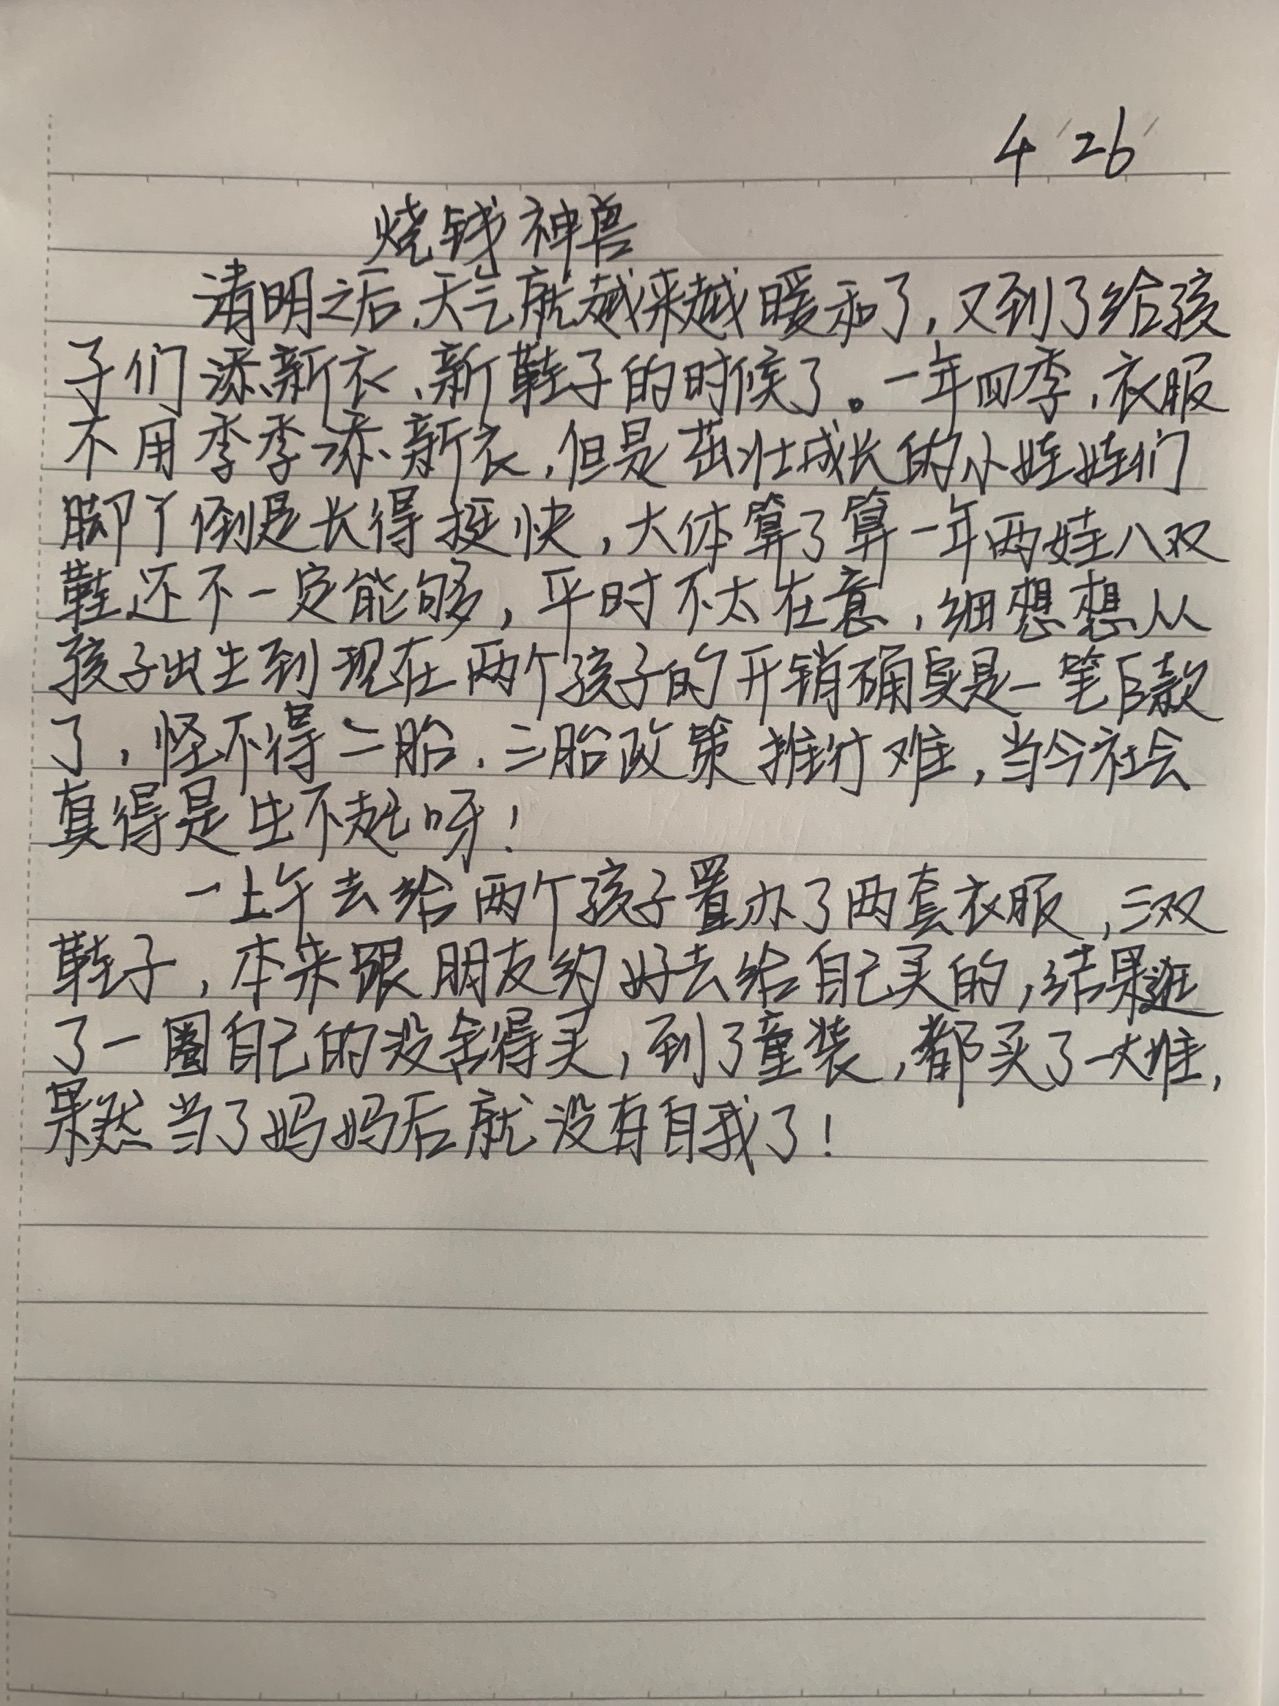 4′26′
烧钱神兽
清明之后,天气就越来越暖和了,又到了给孩
子们添新衣、新鞋子的时候了。一年四季,衣服
不用季季添新衣,但是茁壮成长的小娃娃们
脚丫倒是长得挺快,大体算了算一年两娃八双
鞋还不一定能够,平时不太在意,细想想从
孩子出生到现在两个孩子的开销确实是一笔巨款
了,怪不得二胎、三胎政策推行难,当今社会
真得是生不起呀!
一上午去给两个孩子置办了两套衣服,三双
鞋子,本来跟朋友约好去给自己买的,结果逛
了一圈自己的没舍得买,到了童装,都买了一大堆,
果然当了妈妈后就没有自我了!